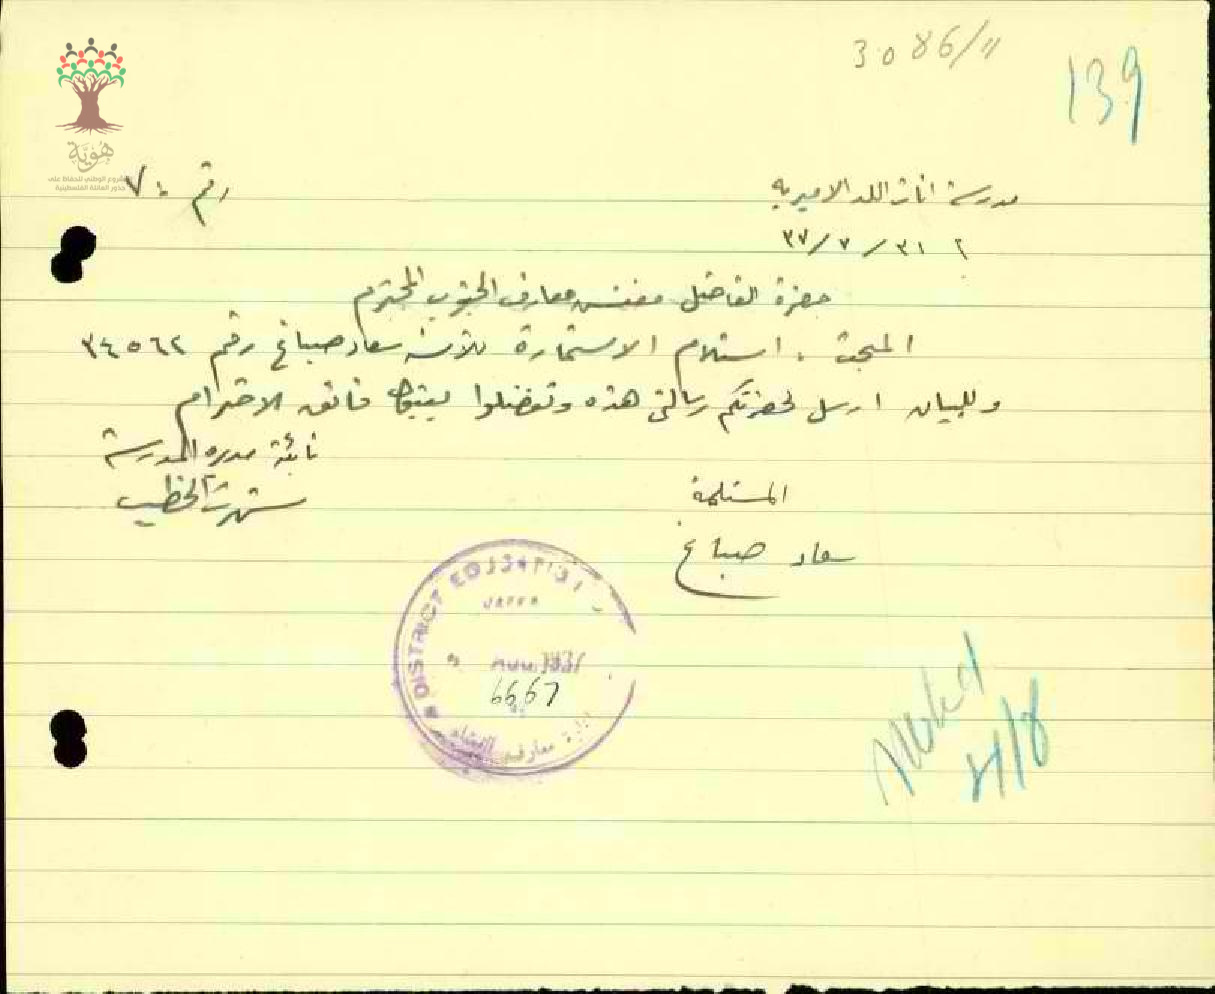 3086/11
139
هُوِيَّة
المشروع الوطني للحفاظ على
جذور العائلة الفلسطينية
مدرسة اناث اللد الاميرية
رقم ٧٤
٣١/٧/٣٧
حضرة الفاضل مفتش معارف الجنوب المحترم
المبحث . استلام الاستمارة للآنسة سعاد صباغ رقم ٣٤٥٦٢
وللبيان ارسل لحضرتكم رسالتي هذه وتفضلوا بقبول فائق الاحترام
نائبة مديرة المدرسة
المستلمة
سعاد صباغ
DISTRICT EDUCATION
JAFFA
6667